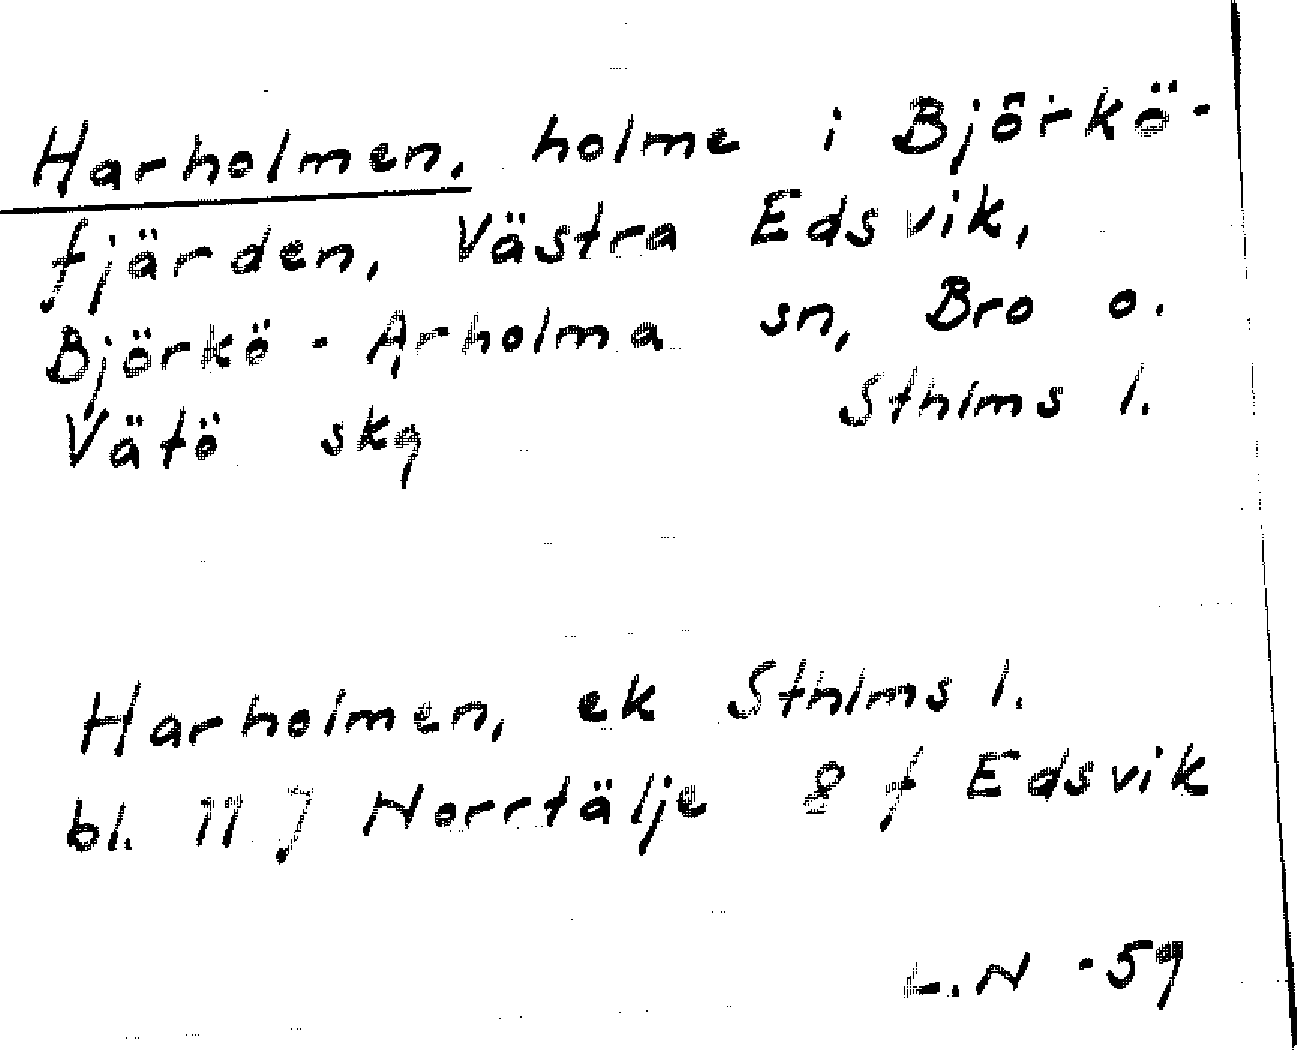 Harholmen, holme i Björkö-
fjärden, Västra Edsvik,
Björkö - Arholma sn, Bro o.
Vätö skg Sthlms l.
Harholmen, ek Sthlms l.
bl. 11 J Norrtälje 8 f Edsvik
L.N -59